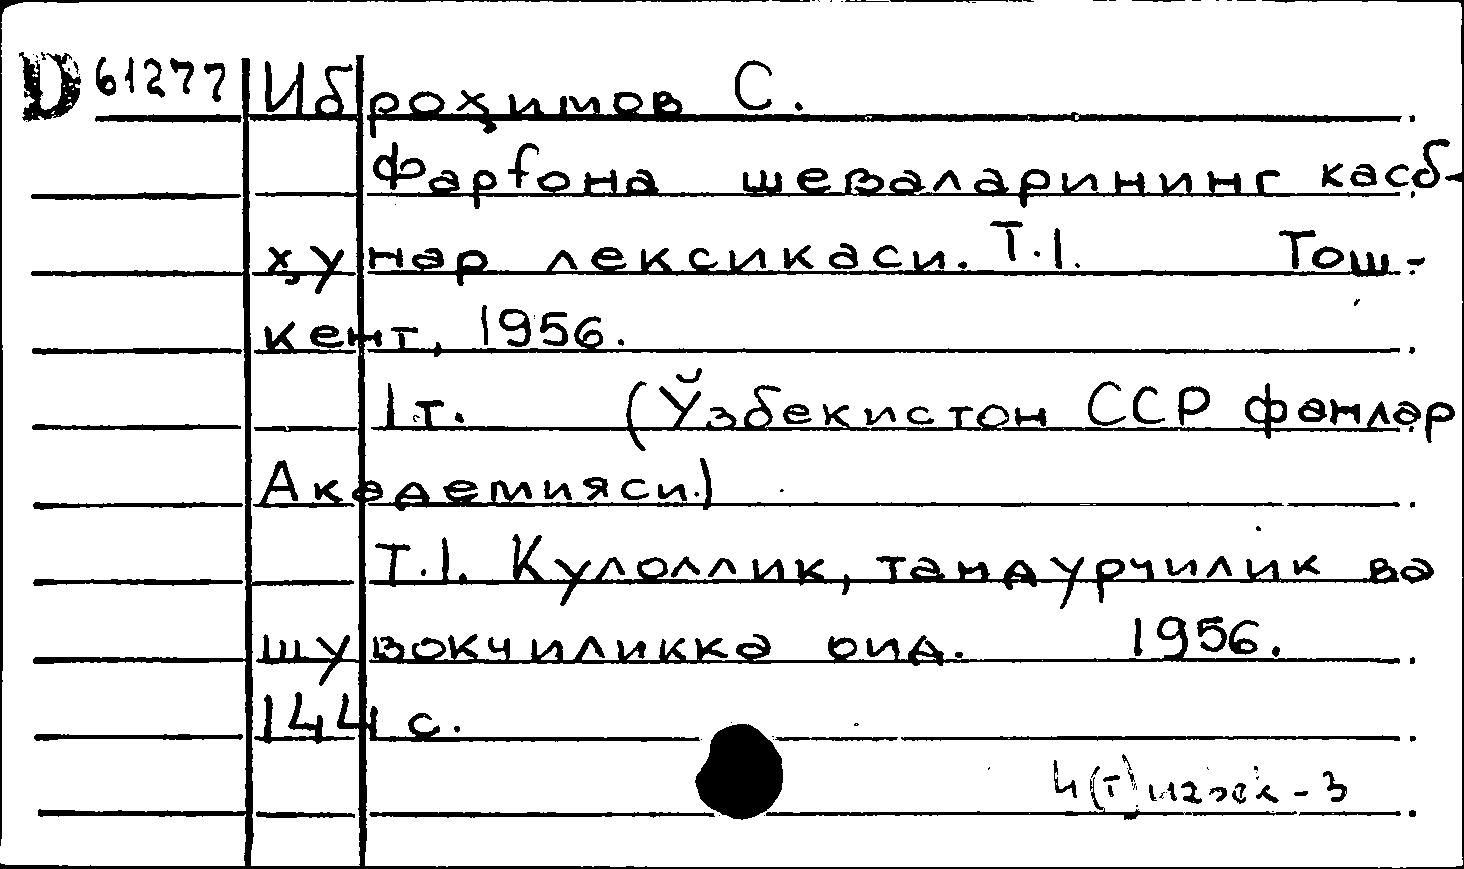 D 61277 Иброҳимов С.
Фарғона шеваларининг касб-
ҳунар лексикаси. Т.1. Тош-
кент, 1956.
1 т. (Ўзбекистон ССР фанлар
Академияси.)
Т.1. Кулоллик, тандурчилик ва
шувокчиликка оид. 1956.
144 с.
4(Т) - 3